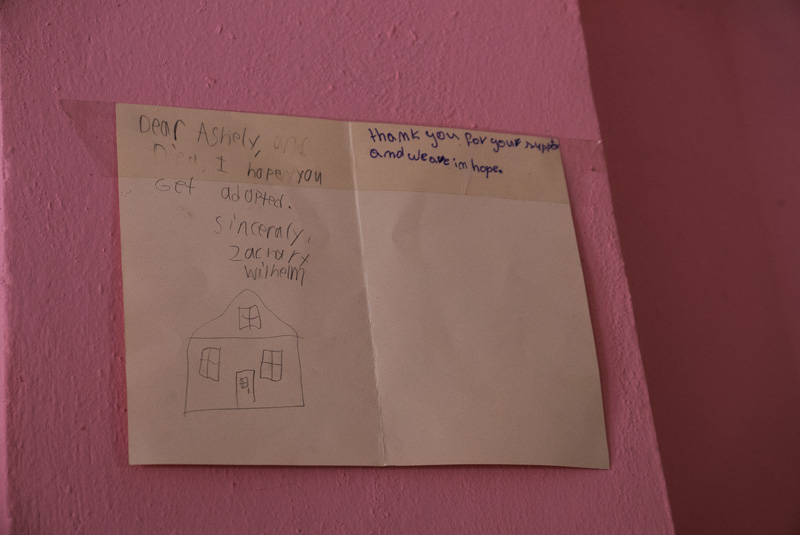 Dear Ashely, and
I hope you
Get adopted.
Sinceraly,
Zachary
Wilhelm
thank you for your suppor
and we are in hope.